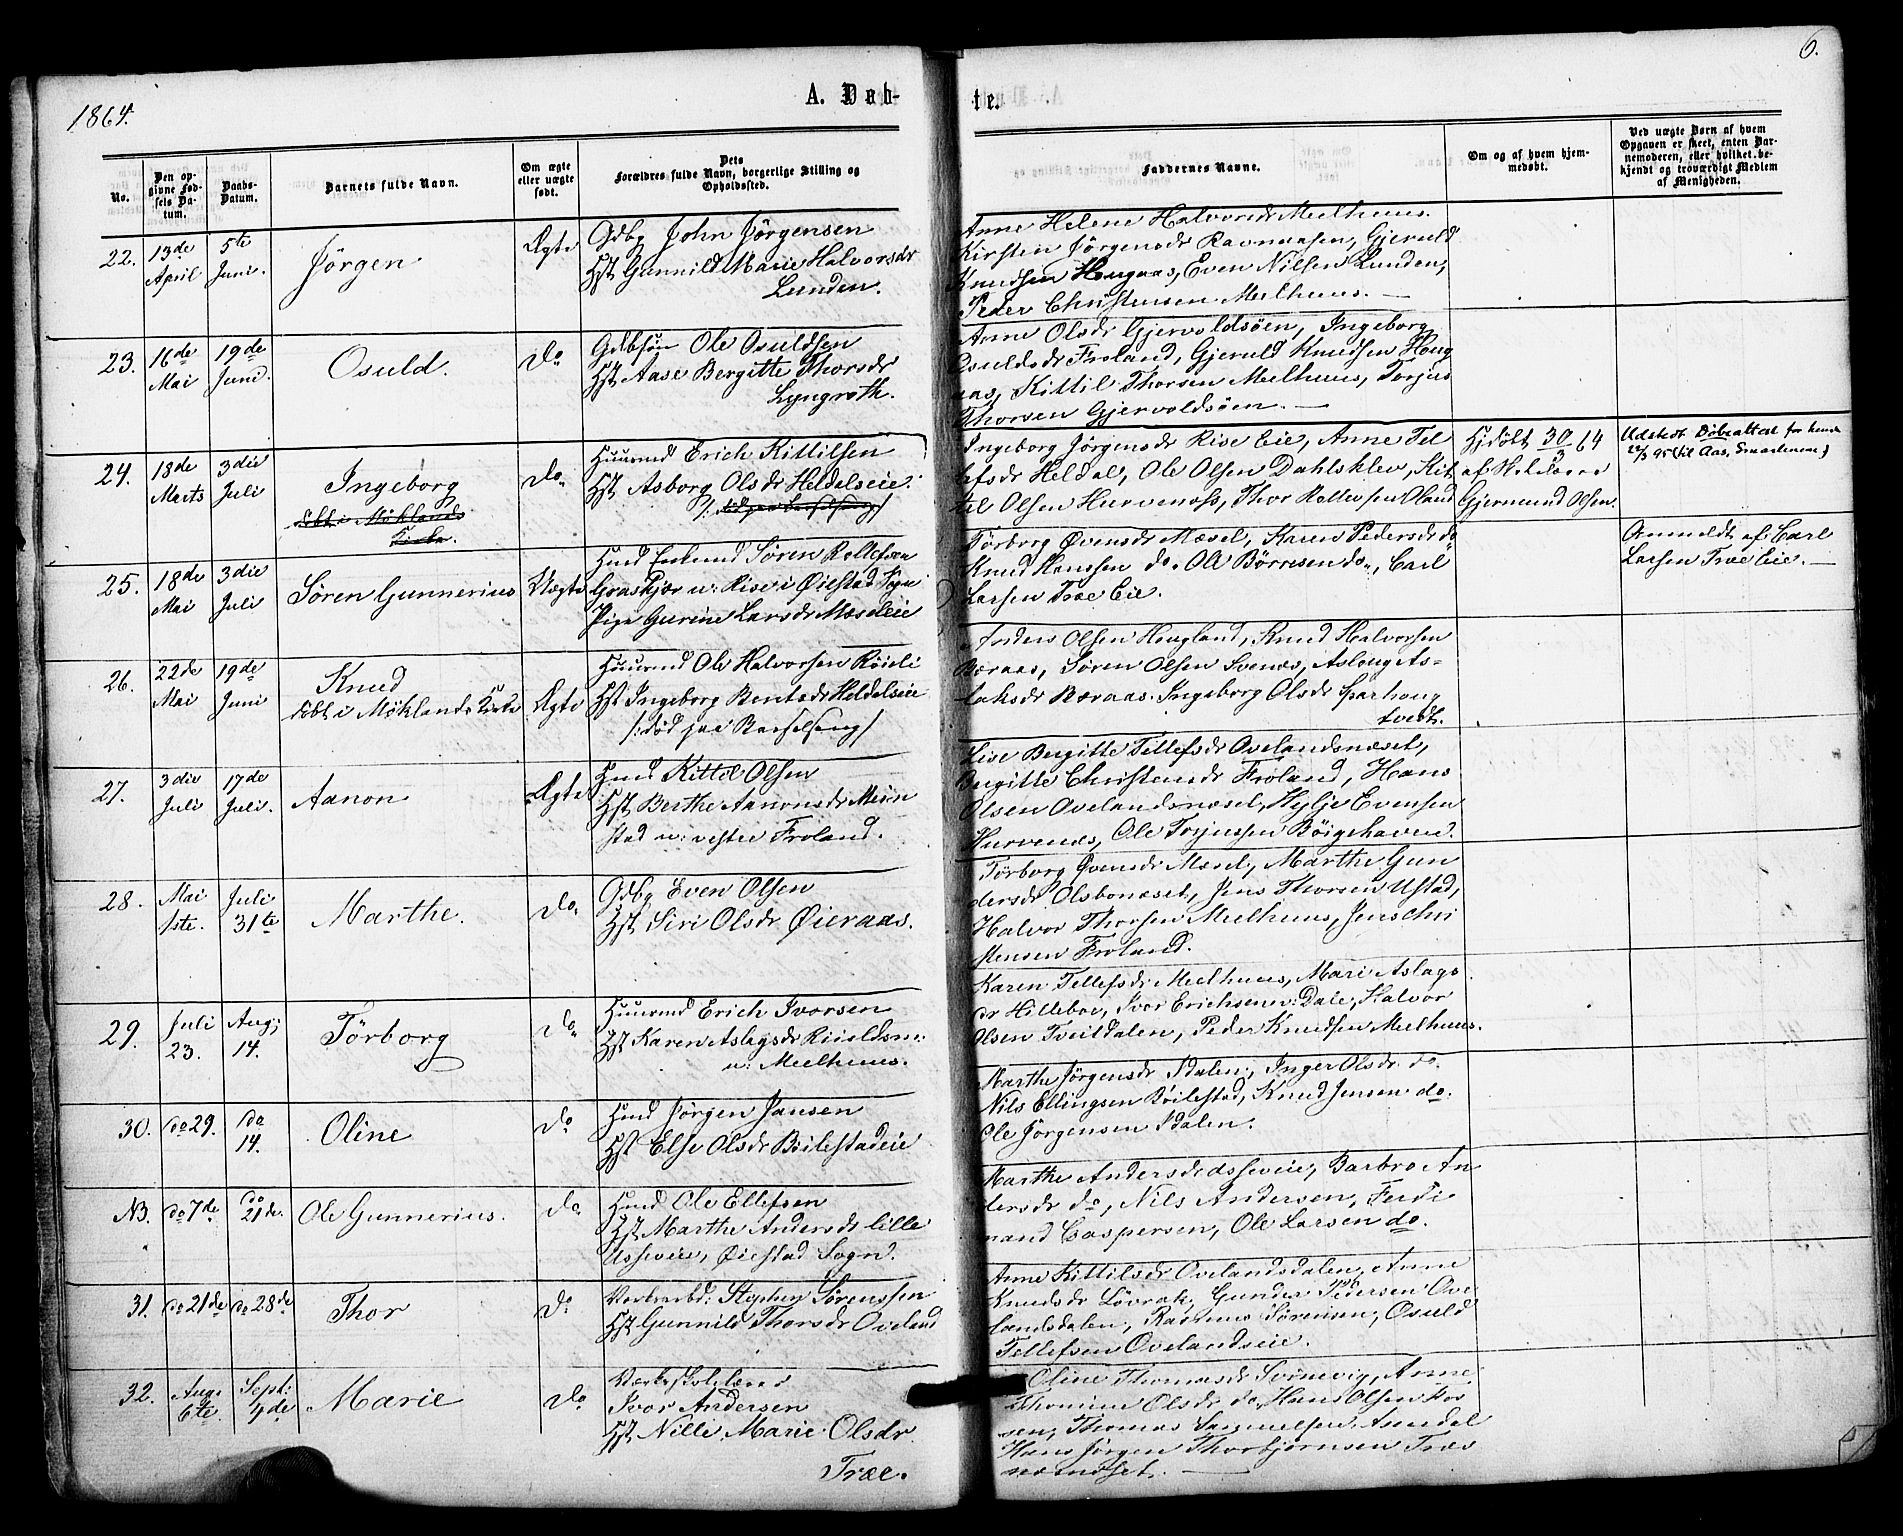 6.
1864.
A. Døb-
te.
No.
Den op-
givne Fød-
sels Da-
tum.
Daabs-
Datum.
Barnets fulde Navn.
Om ægte
eller uægte
født.
Dets
Forældres fulde Navn, borgerlige Stilling og
Opholdssted.
Faddernes Navne.
Om og af hvem hjem-
medøbt.
Ved uægte Børn af hvem
Opgaven er skeet, enten Bar-
nemoderen, eller hvilket be-
kjendt og troværdigt Medlem
af Menigheden.
22.
13de
April
5te
Juni.
Jørgen
Ægte
Gdbg John Jørgensen
Hst Gunnild Marie Halvorsdr
Lunden.
Anne Helene Halvorsdr Meelhuus.
Kirsten Jørgensdr Ravnaasen, Gjeruld
Knudsen Hougaas, Even Nilsen Lunden,
Peder Christensen Meelhuus. —
23.
16de
Mai
19de
Juni.
Osuld.
do
Gdbsøn Ole Osuldsen
Hst Aase Bergitte Thorsdr
Lyngroth.
Anne Olsdr Gjervoldsøen, Ingeborg
Osuldsdr Froland, Gjeruld Knudsen Houg
aas, Kittil Thorsen Meelhuus, Torjus
Thorsen Gjervoldsøen. —
24.
18de
Marts
3die
Juli
Ingeborg
døbt i Møklands
Kirke.
do.
Huusmd Erich Kittilsen
Hst Asborg Olsdr Heldelseie.
/: død paa Barselseng/
Ingeborg Jørgensdr Rise Eie, Anne Tel
lefsdr Heldal, Ole Olsen Dahlsklev, Kit
til Olsen Hurvenæs, Thor Rollefsen Oland
Hjdøbt 30/3 64
af
Gjermund Olsen.
Udstedt Døbeattest for hende
95 (til Aas, )
25.
18de
Mai
3die
Juli
Søren Gunnerius
Uægte
Søren Rollefsen
Graskjær u: Rise i Øiestad Sogn
Pige Gurine Larsdr Mæseleie
Tørborg Øvensdr Mæsel, Karen Pedersdr do
Knud Hanssen do. Ole Børresen do., Carl
Larsen Træ Eie.
Anmeldt af Carl
Larsen Træ Eie. —
26.
22de
Mai
19de
Juni
Knud
døbt i Møklands Kirke
Ægte
Huusmd Ole Halvorsen Røieli
Hst Ingeborg Bentsdr Heldelseie
/: død paa Barselseng/
Anders Olsen Hougland, Knud Halvorsen
Bæraas, Søren Olsen Svenæs, Aslaug As-
laksdr Bæraas. Ingeborg Olsdr Sparhoug
tvedt.
27.
3die
Juli
17de
Juli.
Aanon
Ægte
Husmd Kittel Olsen
Hst Berthe Aanonsdr Meien
stad u: vestre Froland.
Lise Bergitte Tellefsdr Ovelandsnæset,
Birgitte Christensdr Froland, Hans
Olsen Ovelandsnæset, Hylje Evensen
Hurvenæs, Ole Torjussen Bøigehaven.
28.
Mai
1ste.
Juli
31te
Marthe.
do.
Gdbg Even Olsen
Hst Siri Olsdr Øieraas.
Tørborg Øvensdr Mæsel, Marthe Gun
dersdr Olsbonæset, Jens Thorsen Ustad,
Halvor Thorsen Meelhuus, Jens Chri
stensen Froland.
29.
Juli
23.
Aug;
14.
Tørborg
do.
Huusmd Erich Ivorsen
Hst Karen Aslagsdr
u: Meelhuus.
Karen Tellefsdr Meelhuus, Mari Aslags
dr Hilleboe, Ivor Erichsen u: Dale, Halvor
Olsen Tveitdalen, Peder Knudsen Meelhuus.
30.
do 29.
do
14.
Oline
do
Husmd Jørgen Jansen
Hst Else Olsdr Bøilestadeie
Marthe Jørgensdr Idalen, Inger Olsdr. do.
Nils Ellingsen Bøilestad, Knud Jensen do.
Ole Jørgensen Idalen.
NB.
do 7de
do
21de.
Ole Gunnerius.
do
Husmd Ole Ellefsen
Hst Marthe Andersdr lille
Asseveie, Øiestad Sogn.
Marthe Andersdr Asseveie, Barbro An
dersdr do, Nils Andersen, Ferdi
nand Caspersen, Ole Larsen do.
31.
do 21de
do 28de
Thor
do
Værksarbd: Stephen Sørenssen
Hst Gunnild Thorsdr Oveland
Anne Kittilsdr Ovelandsdalen, Anne
Knudsdr Løvrak, Gunder Pedersen Ove
landsdalen, Rasmus Sørensen, Osuld
Tellefsen Ovelandseie.
32.
Aug.
6te.
Sept:
4de
Marie
do
Værksskolelærer
Ivor Andersen
Hst Nille Marie Olsdr
Træe.
Oline Thomasdr Sørnevig, Anne
Thomine Olsdr do, Hans Olsen For
sen, Thomas Samuelsen Arendal
Hans Jørgen Thorbjørnsen Træs